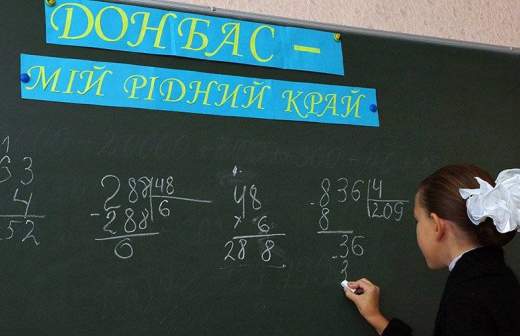 ДОНБАС –
МІЙ РІДНИЙ КРАЙ
63
4
52
288 48
- 288 6
0
48
× 6
288
836 4
- 8 209
- 36
3